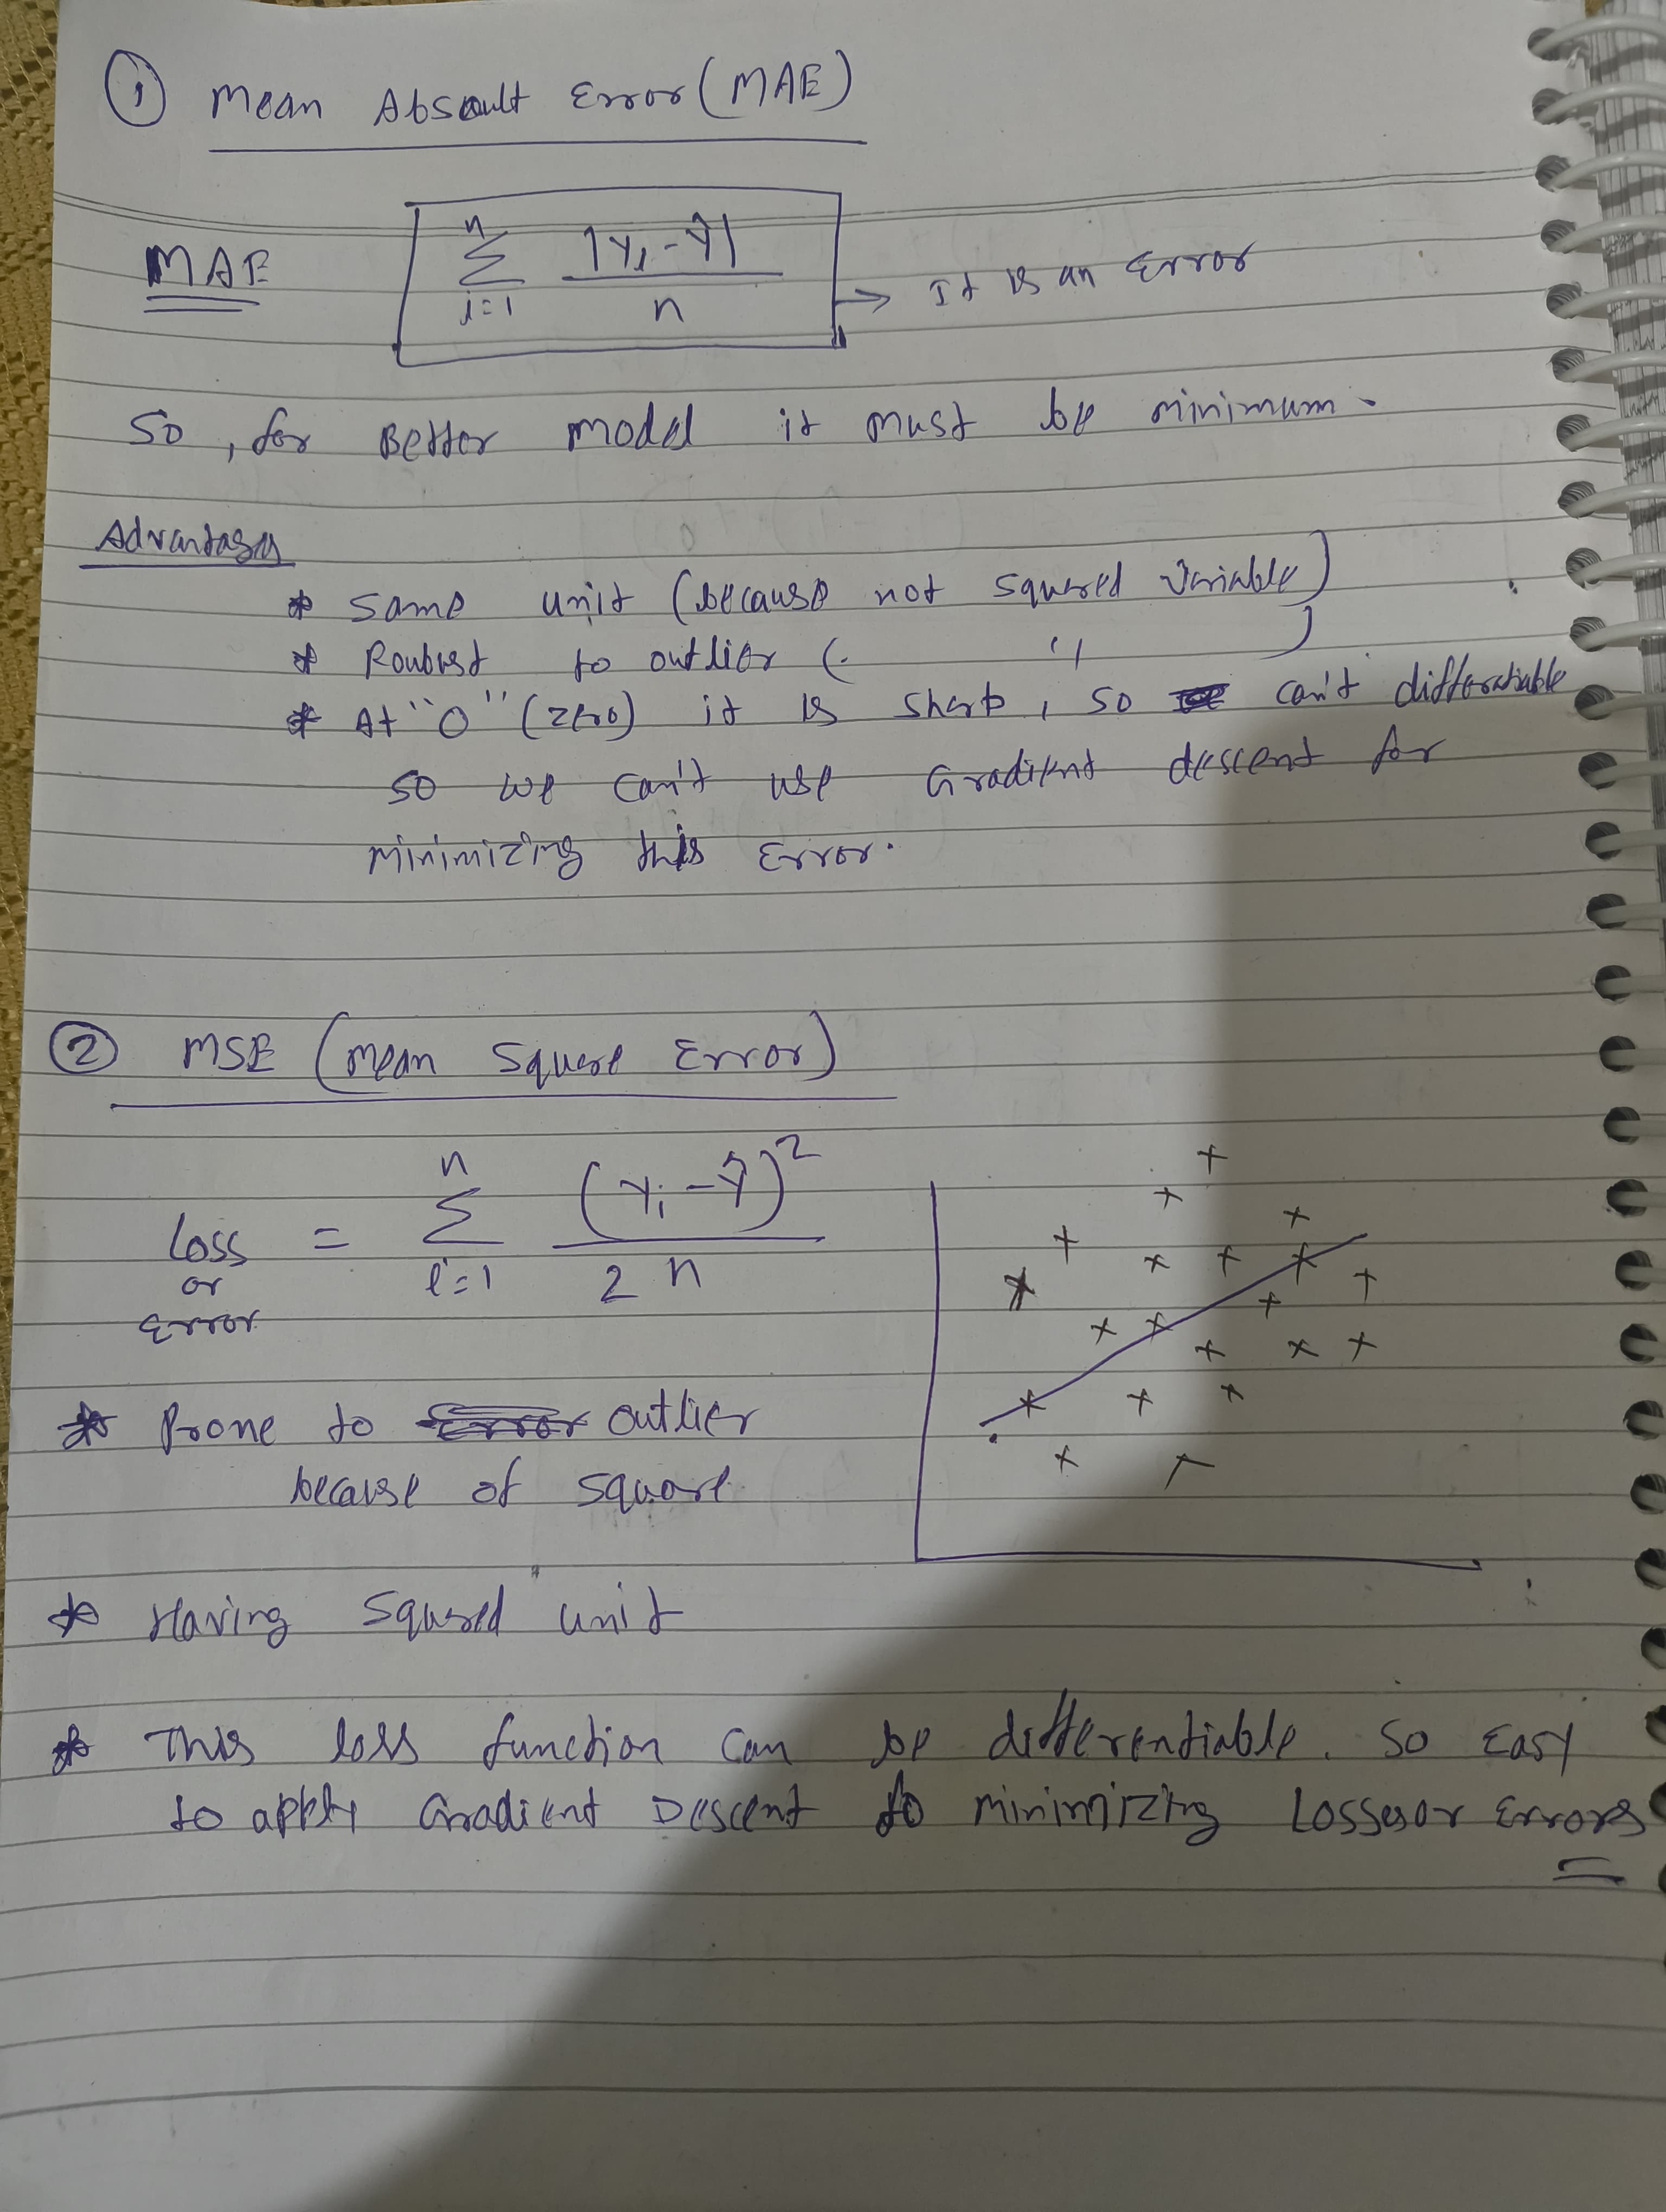 ① Mean Absoult Error (MAE)
MAE
n
Σ |Yi - Ŷ|
i=1 n
→ It is an Error
So, for Better model it must be minimum.
Advantages
* Same unit (because not squared variable)
* Roubust to outlier ( " )
* At "0" (zero) it is sharp, so can't differatiable
so we can't use Gradient descent for
minimizing this Error.
② MSE (Mean Square Error)
Loss or Error = n Σ i=1 (Yi - Ŷ)² / 2n
* Prone to Error outlier
because of square
* Having Squared unit
* This loss function can be differentiable. So Easy
to apply Gradient Descent to minimizing Losses or Errors